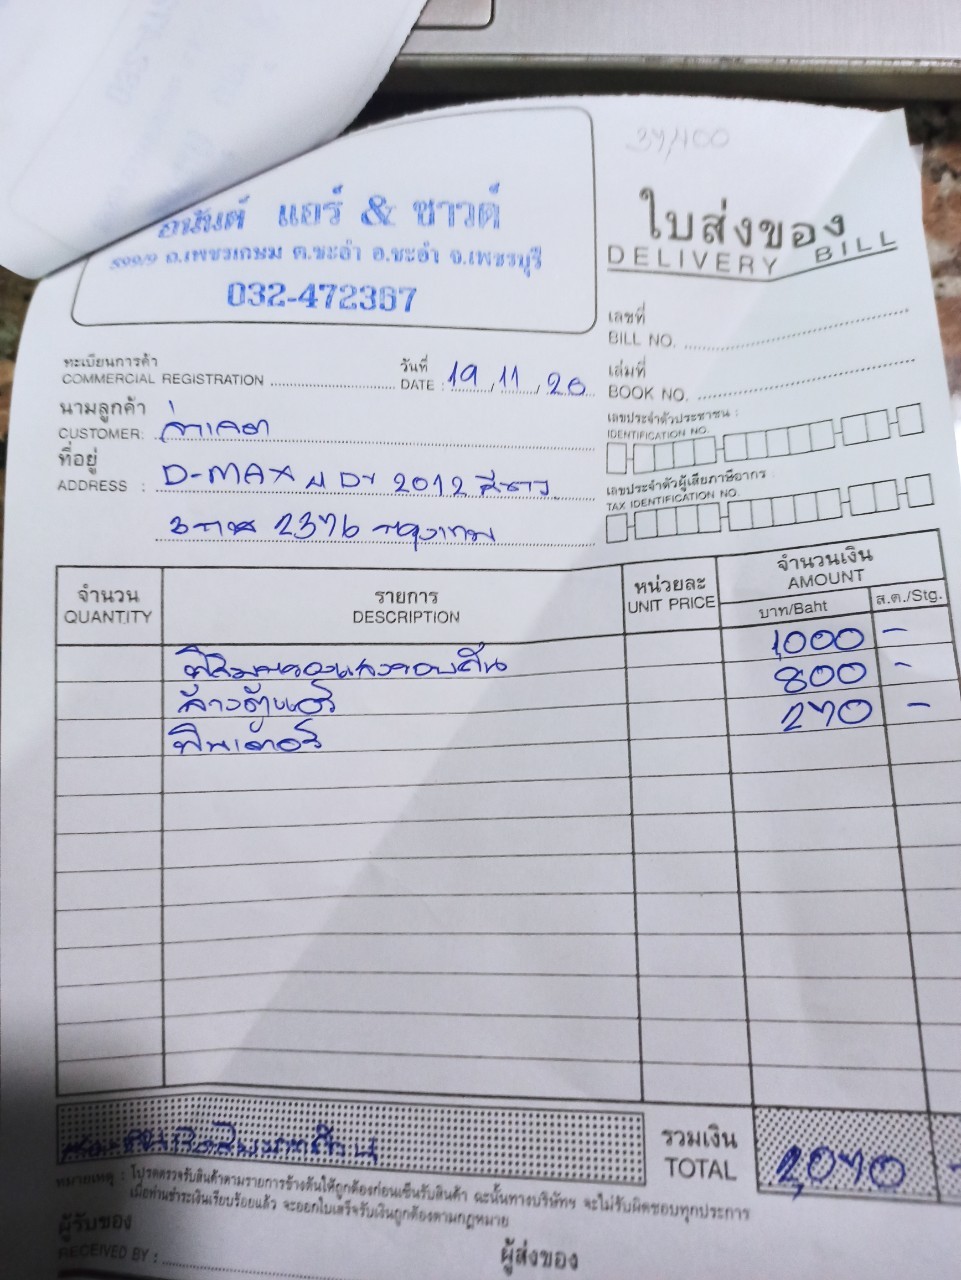 37/400
อนันต์ แอร์ & ซาวด์
599/9 ถ.เพชรเกษม ต.ชะอำ อ.ชะอำ จ.เพชรบุรี
032-472367
ใบส่งของ
DELIVERY BILL
เลขที่
BILL NO.
ทะเบียนการค้า
COMMERCIAL REGISTRATION
วันที่
DATE : 19, 11, 20
เล่มที่
BOOK NO.
นามลูกค้า
CUSTOMER:
เลขประจำตัวประชาชน :
IDENTIFICATION NO.
ที่อยู่
ADDRESS : D-MAX 2012 สีขาว
2376 กรุงเทพ
เลขประจำตัวผู้เสียภาษีอากร
TAX IDENTIFICATION NO.
จำนวน
QUANTITY
รายการ
DESCRIPTION
หน่วยละ
UNIT PRICE
จำนวนเงิน
AMOUNT
บาท/Baht
ส.ต./Stg.
1,000 -
ล้างตู้แอร์ 800 -
ฟิวเตอร์ 270 -
รวมเงิน
TOTAL 2,070 -
หมายเหตุ : โปรดตรวจรับสินค้าตามรายการข้างต้นให้ถูกต้องก่อนเซ็นรับสินค้า ฉะนั้นทางบริษัทฯ จะไม่รับผิดชอบทุกประการ
เมื่อท่านชำระเงินเรียบร้อยแล้ว จะออกใบเสร็จรับเงินถูกต้องตามกฎหมาย
ผู้รับของ
RECEIVED BY :
ผู้ส่งของ